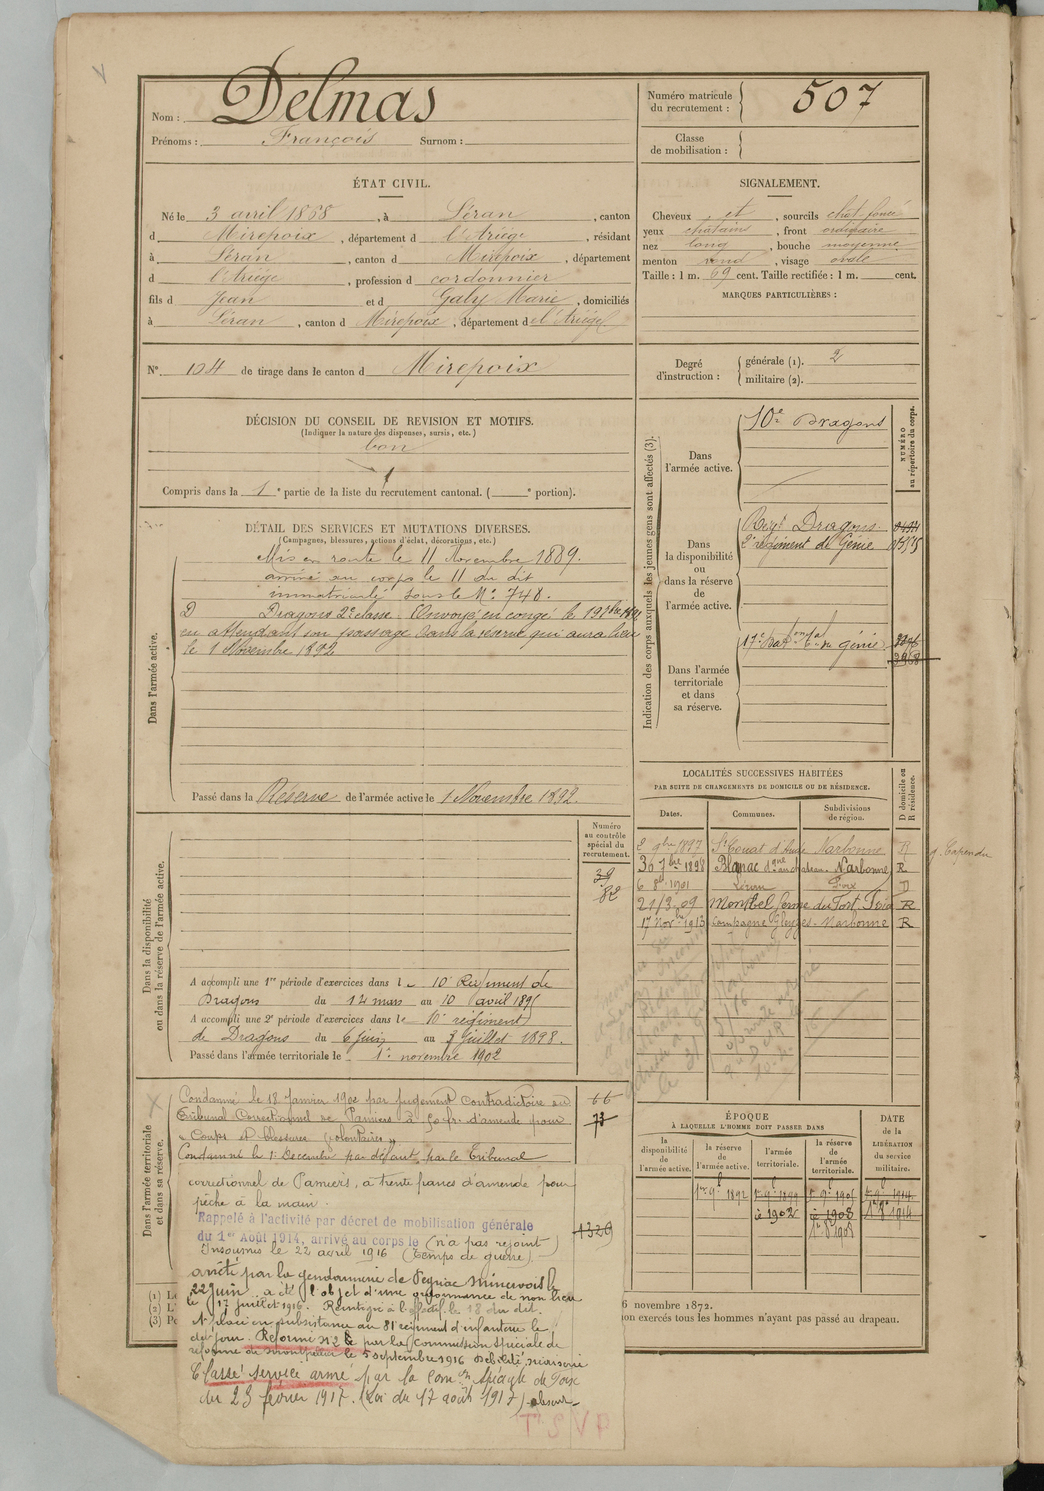 Nom : Delmas
Prénoms : François Surnom :
Numéro matricule du recrutement : 507
Classe de mobilisation :
ÉTAT CIVIL.
Né le 3 avril 1868, à Léran, canton
d Mirepoix, département d l'Ariège, résidant
à Léran, canton d Mirepoix, département
d l'Ariège, profession d cordonnier
fils d Jean et d Galy Marie, domiciliés
à Léran, canton d Mirepoix, département d el'Ariège
N° 104 de tirage dans le canton d Mirepoix
SIGNALEMENT.
Cheveux et, sourcils chat. foncé
yeux chatains, front ordinaire
nez long, bouche moyenne
menton rond, visage ovale
Taille : 1 m. 69 cent. Taille rectifiée : 1 m. cent.
MARQUES PARTICULIÈRES :
Degré d'instruction : générale (1). 2
militaire (2).
DÉCISION DU CONSEIL DE REVISION ET MOTIFS.
(Indiquer la nature des dispenses, sursis, etc.)
bon
Compris dans la 1e partie de la liste du recrutement cantonal. ( e portion).
DÉTAIL DES SERVICES ET MUTATIONS DIVERSES.
(Campagnes, blessures, actions d'éclat, décorations, etc.)
Dans l'armée active.
Mis en route le 11 Novembre 1889.
arrivé au corps le 11 du dit
immatriculé sous le N° 748.
D Dragons 2e classe. Envoyé en congé le
en attendant son passage dans la réserve qui aura lieu
le 1 Novembre 1892
Passé dans la Réserve de l'armée active le 1 Novembre 1892.
Indication des corps auxquels les jeunes gens sont affectés (3).
NUMÉRO au répertoire du corps.
Dans l'armée active.
10e Dragons
Dans la disponibilité ou dans la réserve de l'armée active.
Regt Dragons.
2e régiment de Génie
Dans l'armée territoriale et dans sa réserve.
17e Bat. on tal du génie
LOCALITÉS SUCCESSIVES HABITÉES
PAR SUITE DE CHANGEMENTS DE DOMICILE OU DE RÉSIDENCE.
D domicile ou R résidence.
Dates. Communes. Subdivisions de région.
2 9bre 1897 St Couat d'Aude Narbonne R
30 7bre 1898 Narbonne R
6 1901 Léran Foix D
21/3-09 Montbel Foix R
17 Novbre 1913 Campagne Narbonne R
Dans la disponibilité ou dans la réserve de l'armée active.
Numéro au contrôle spécial du recrutement.
39
82
A accompli une 1re période d'exercices dans le 10e Régiment de
Dragons du 12 mars au 10 avril 1895
A accompli une 2e période d'exercices dans le 10e régiment
de Dragons du 6 juin au 3 juillet 1898.
Passé dans l'armée territoriale le 1er novembre 1902
Dans l'armée territoriale et dans sa réserve.
66
73
1329
Condamné le 18 Janvier 1902 par jugement contradictoire du
tribunal Correctionnel de Pamiers à 50 fr. d'amende pour
"Coups et blessures volontaires"
Condamné le 1er Décembre par défaut par le tribunal
correctionnel de Pamiers, à trente francs d'amende pour
pêche à la main.
Rappelé à l'activité par décret de mobilisation générale
du 1er Août 1914, arrivé au corps le (n'a pas rejoint)
Insoumis le 22 avril 1916 (temps de guerre)
arrêté par la gendarmerie de Peyriac Minervois le
22 juin. a été l'objet d'une ordonnance de non lieu
le 17 juillet 1916. Réintégré à l'effectif le 18 du dit.
Placé en subsistance au 81e régiment d'infanterie le
dit jour. Réformé n° 2 par la Commission spéciale de
réforme de Montpellier le 5 septembre 1916
Classé service armé par la Comon spéciale de Foix
du 23 février 1917. (Loi du 17 août 1917)
ÉPOQUE
À LAQUELLE L'HOMME DOIT PASSER DANS
la disponibilité de l'armée active. la réserve de l'armée active. l'armée territoriale. la réserve de l'armée territoriale.
DATE de la LIBÉRATION du service militaire.
1er 9bre 1892
1902 1908
6 novembre 1872.
on exercés tous les hommes n'ayant pas passé au drapeau.
(1)
(2)
(3)